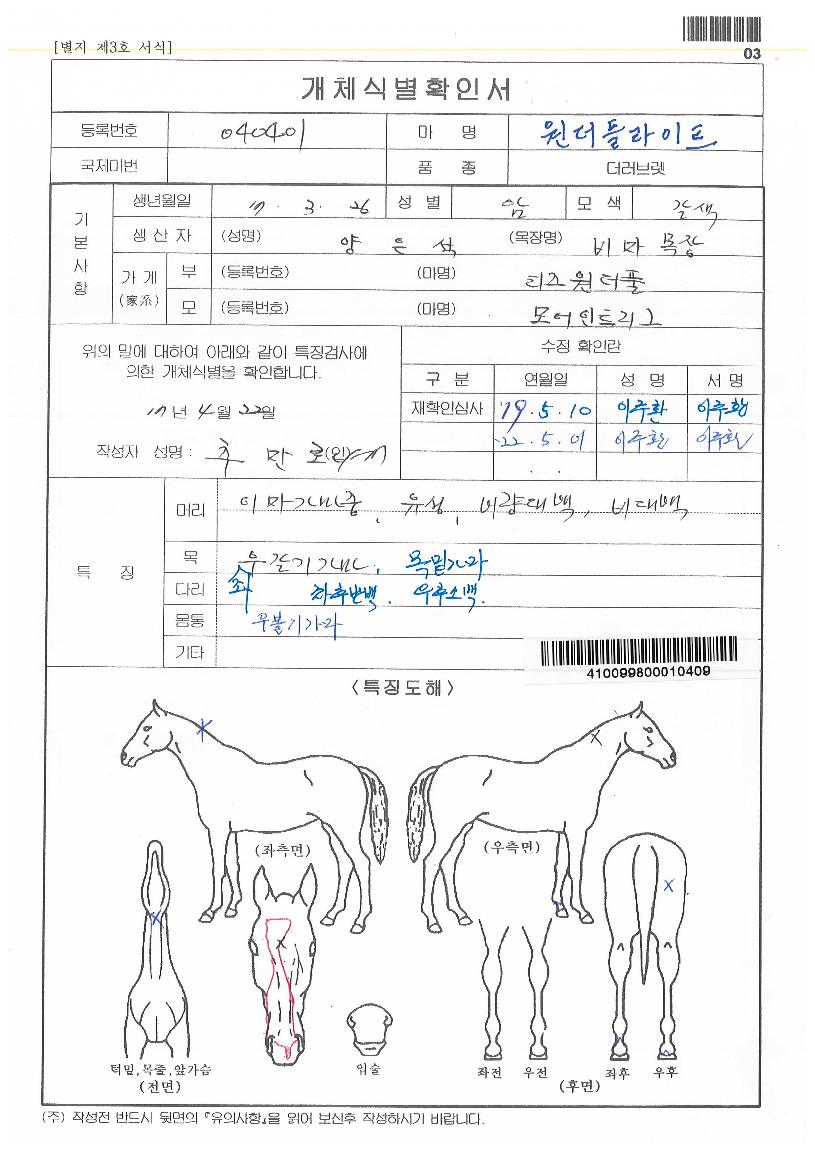 03
[별지 제3호 서식]
개체식별확인서
등록번호 040401 마 명 원더풀라이프
국제미번 품 종 더러브렛
기본사항
생년월일 17. 3. 26 성 별 암 모 색 갈색
생 산 자 (성명) 양 은 석 (목장명) 비마 목장
가 계 (家系) 부 (등록번호) (마명) 티즈원더풀
모 (등록번호) (마명) 모어인트리그
위의 말에 대하여 아래와 같이 특징검사에
의한 개체식별을 확인합니다.
17년 4월 22일
작성자 성명 : 추 만 (인)
수정 확인란
구 분 연월일 성 명 서 명
재확인심사 '19. 5. 10 이주환 이주환
'22. 5. 01 이주환 이주환
특 징
머리 이마가마중, 유성, 비량대백, 비대백
목 우갈기가마, 목밑가마
다리 좌 좌후반백. 우후소백.
몸통 우볼기가마
기타
410099800010409
<특징도해>
(좌측면)
(우측면)
턱밑,목줄,앞가슴
(전면)
입술
좌전 우전 좌후 우후
(후면)
(주) 작성전 반드시 뒷면의 『유의사항』을 읽어 보신후 작성하시기 바랍니다.